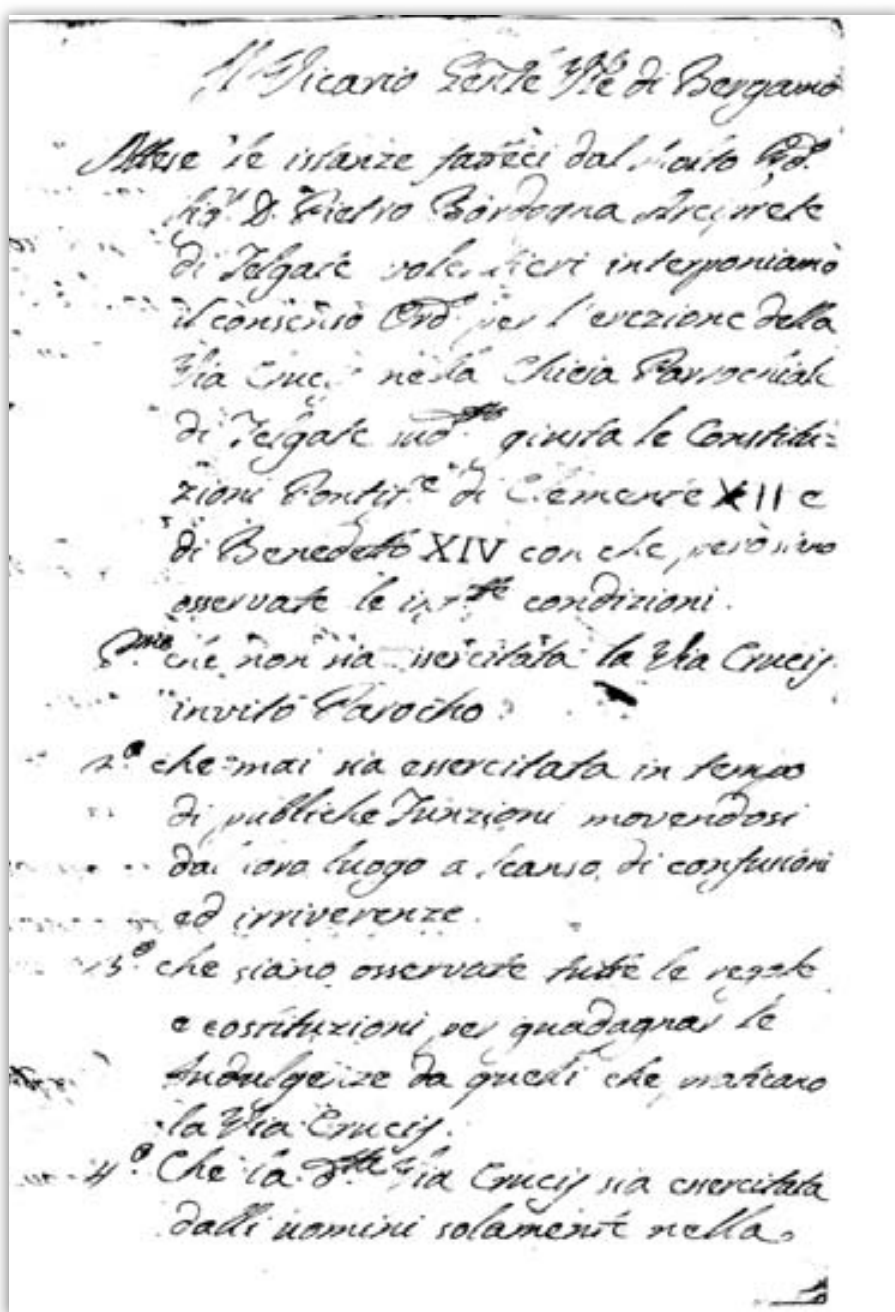 Il Vicario Gen.le di Bergamo
Attese le istanze fatteci dal Molto Rd.
Sig.r D. Pietro Bordogna Arciprete
di Telgate volentieri interponiamo
il consenso Ord.o per l'erezione della
Via Crucis nella Chiesa Parrochiale
di Telgate sud.tta giusta le Constitu=
zioni Pontif.e di Clemente XII e
di Benedetto XIV con che però siano
osservate le condizioni.
P.mo che non sia esercitata la Via Crucis
invito Parocho.
2.o che mai sia essercitata in tempo
di publiche Funzioni movendosi
dal loro luogo a scanso di confusioni
ed irriverenze.
3.o che siano osservate tutte le regole
e costituzioni per guadagnar le
Indulgenze da quelli che praticano
la Via Crucis.
4.o Che la d.tta Via Crucis sia esercitata
dalli uomini solamente nella